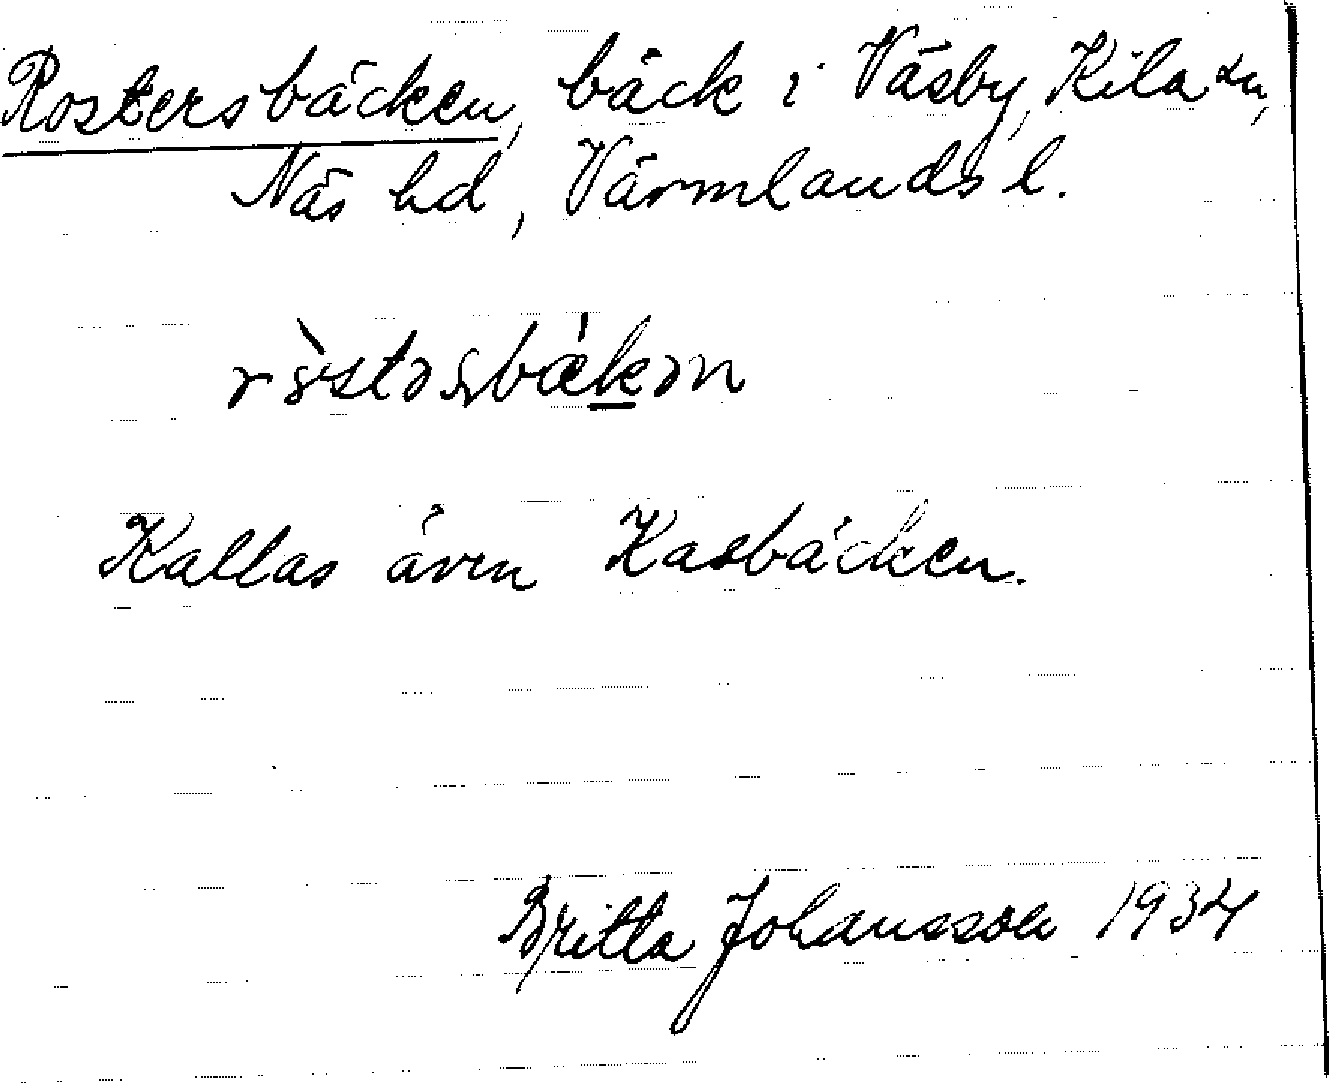 Rostersbäcken, bäck i Väsby, Kila sn,
Näs hd, Värmlands l.
Kallas även Kasbäcken.
Britta Johansson 1934